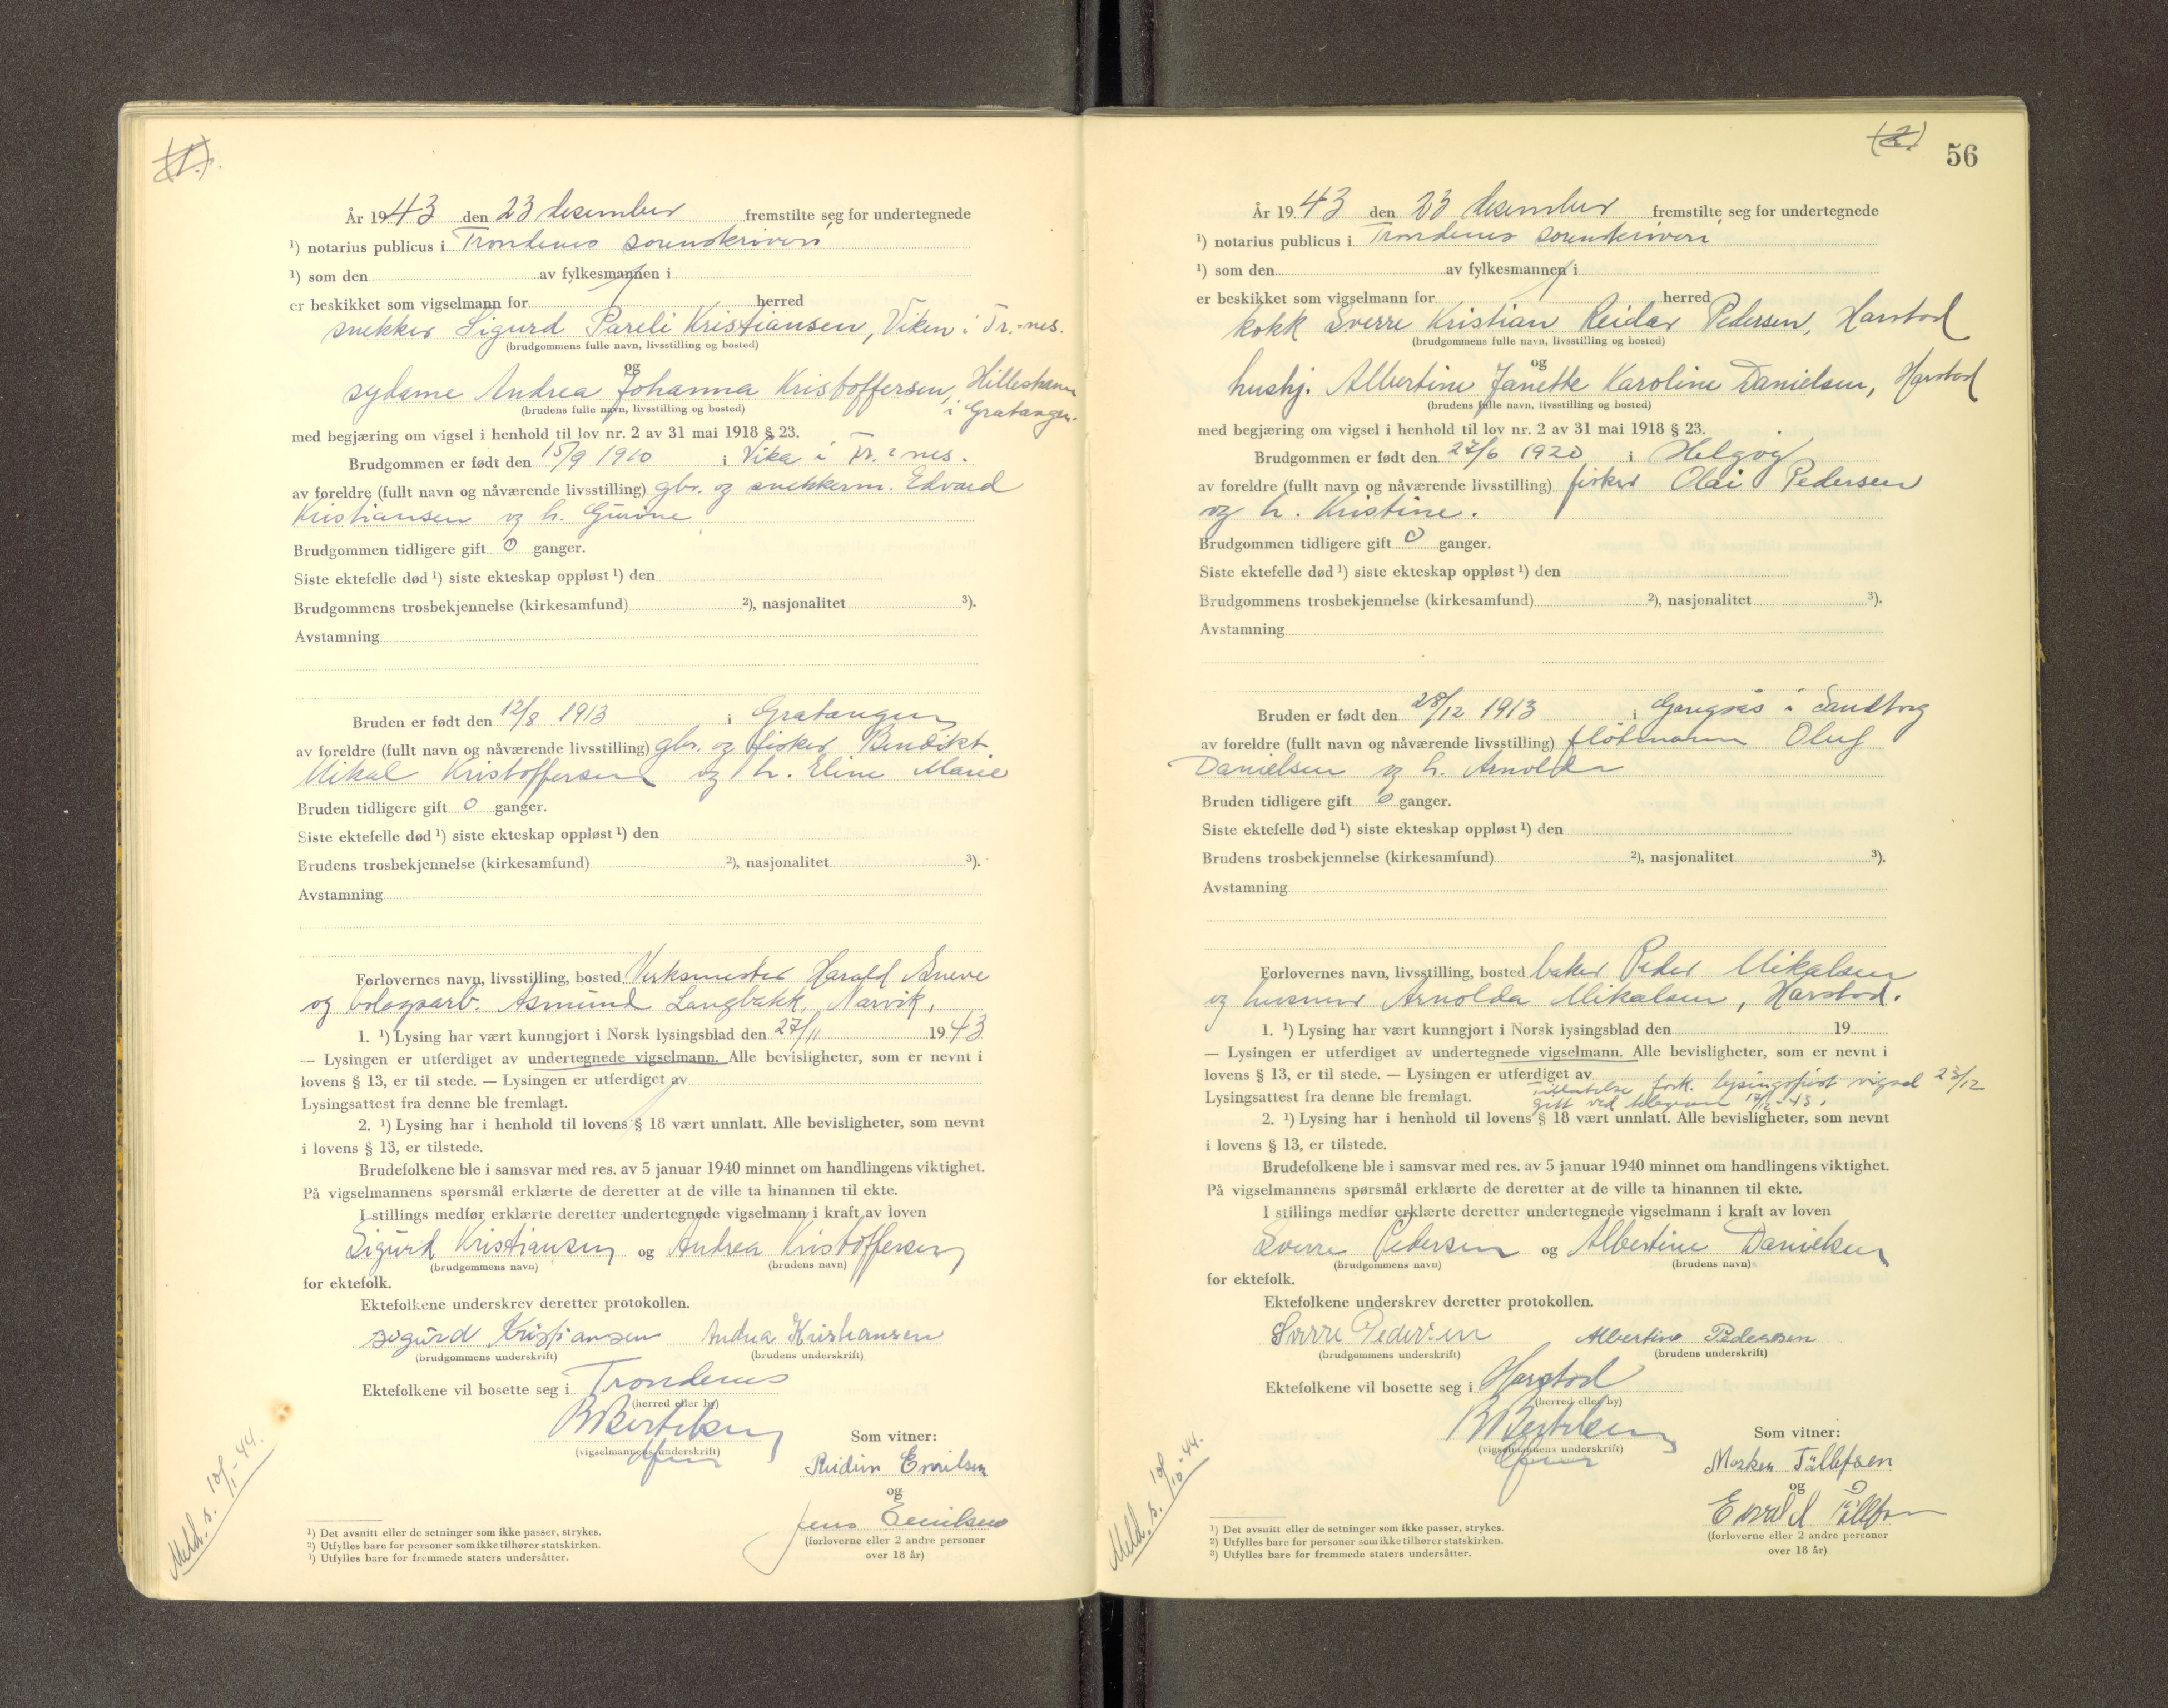 (1.)
År 1943 den 23 desember fremstilte seg for undertegnede
¹) notarius publicus i Trondenes sorenskriveri
¹) som den av fylkesmannen i
er beskikket som vigselmann for herred
snekker Sigurd Pareli Kristiansen, Viken i Tr.nes.
(brudgommens fulle navn, livsstilling og bosted)
og
sydame Andrea Johanna Kristoffersen, Hilleshamn
i Gratangen.
(brudens fulle navn, livsstilling og bosted)
med begjæring om vigsel i henhold til lov nr. 2 av 31 mai 1918 § 23.
Brudgommen er født den 15/9 1910 i Vika i Tr.nes.
av foreldre (fullt navn og nåværende livsstilling) gbr. og snekkerm. Edvard
Kristiansen og h. Gurine
Brudgommen tidligere gift 0 ganger.
Siste ektefelle død ¹) siste ekteskap oppløst ¹) den
Brudgommens trosbekjennelse (kirkesamfund) ²), nasjonalitet ³).
Avstamning
Bruden er født den 12/8 1913 i Gratangen
av foreldre (fullt navn og nåværende livsstilling) gbr. og fisker Bendikt
Mikal Kristoffersen og h. Eline Marie
Bruden tidligere gift 0 ganger.
Siste ektefelle død ¹) siste ekteskap oppløst ¹) den
Brudens trosbekjennelse (kirkesamfund) ²), nasjonalitet ³).
Avstamning
Forlovernes navn, livsstilling, bosted Verksmester Harald Sneve
og bolagsarb. Asmund Langbakk, Narvik.
1. ¹) Lysing har vært kunngjort i Norsk lysingsblad den 27/11 1943
— Lysingen er utferdiget av undertegnede vigselmann. Alle bevisligheter, som er nevnt i
lovens § 13, er til stede. — Lysingen er utferdiget av
Lysingsattest fra denne ble fremlagt.
2. ¹) Lysing har i henhold til lovens § 18 vært unnlatt. Alle bevisligheter, som nevnt
i lovens § 13, er tilstede.
Brudefolkene ble i samsvar med res. av 5 januar 1940 minnet om handlingens viktighet.
På vigselmannens spørsmål erklærte de deretter at de ville ta hinannen til ekte.
I stillings medfør erklærte deretter undertegnede vigselmann i kraft av loven
Sigurd Kristiansen og Andrea Kristoffersen
(brudgommens navn) (brudens navn)
for ektefolk.
Ektefolkene underskrev deretter protokollen.
Sigurd Kristiansen Andrea Kristiansen
(brudgommens underskrift) (brudens underskrift)
Ektefolkene vil bosette seg i Trondenes
(herred eller by)
B Bertelsen
(vigselmannens underskrift)
Som vitner:
Reidun Emilsen
og
Jens Emilsen
(forloverne eller 2 andre personer
over 18 år)
¹) Det avsnitt eller de setninger som ikke passer, strykes.
²) Utfylles bare for personer som ikke tilhører statskirken.
³) Utfylles bare for fremmede staters undersåtter.
Meld. s. 10/1-44.
(2.)
56
År 1943 den 23 desember fremstilte seg for undertegnede
¹) notarius publicus i Trondenes sorenskriveri
¹) som den av fylkesmannen i
er beskikket som vigselmann for herred
kokk Sverre Kristian Reidar Pedersen, Harstad
(brudgommens fulle navn, livsstilling og bosted)
og
hushj. Albertine Janette Karoline Danielsen, Harstad
(brudens fulle navn, livsstilling og bosted)
med begjæring om vigsel i henhold til lov nr. 2 av 31 mai 1918 § 23.
Brudgommen er født den 27/6 1920 i Helgøy
av foreldre (fullt navn og nåværende livsstilling) fisker Olai Pedersen
og h. Kristine.
Brudgommen tidligere gift 0 ganger.
Siste ektefelle død ¹) siste ekteskap oppløst ¹) den
Brudgommens trosbekjennelse (kirkesamfund) ²), nasjonalitet ³).
Avstamning
Bruden er født den 28/12 1913 i Gangsås i Sandtorg
av foreldre (fullt navn og nåværende livsstilling) fløtmann Oluf
Danielsen og h. Arnolda
Bruden tidligere gift 0 ganger.
Siste ektefelle død ¹) siste ekteskap oppløst ¹) den
Brudens trosbekjennelse (kirkesamfund) ²), nasjonalitet ³).
Avstamning
Forlovernes navn, livsstilling, bosted baker Peder Mikalsen
og husmor Arnolda Mikalsen, Harstad.
1. ¹) Lysing har vært kunngjort i Norsk lysingsblad den 19
— Lysingen er utferdiget av undertegnede vigselmann. Alle bevisligheter, som er nevnt i
lovens § 13, er til stede. — Lysingen er utferdiget av
Tillatelse fork. lysingsfrist vigsel 23/12
Lysingsattest fra denne ble fremlagt. gitt ved telegram 17/12-43.
2. ¹) Lysing har i henhold til lovens § 18 vært unnlatt. Alle bevisligheter, som nevnt
i lovens § 13, er tilstede.
Brudefolkene ble i samsvar med res. av 5 januar 1940 minnet om handlingens viktighet.
På vigselmannens spørsmål erklærte de deretter at de ville ta hinannen til ekte.
I stillings medfør erklærte deretter undertegnede vigselmann i kraft av loven
Sverre Pedersen og Albertine Danielsen
(brudgommens navn) (brudens navn)
for ektefolk.
Ektefolkene underskrev deretter protokollen.
Sverre Pedersen Albertine Pedersen
(brudgommens underskrift) (brudens underskrift)
Ektefolkene vil bosette seg i Harstad
(herred eller by)
B Bertelsen
(vigselmannens underskrift)
Som vitner:
Tollefsen
og
(forloverne eller 2 andre personer
over 18 år)
¹) Det avsnitt eller de setninger som ikke passer, strykes.
²) Utfylles bare for personer som ikke tilhører statskirken.
³) Utfylles bare for fremmede staters undersåtter.
Meld. s. 10/10-44.